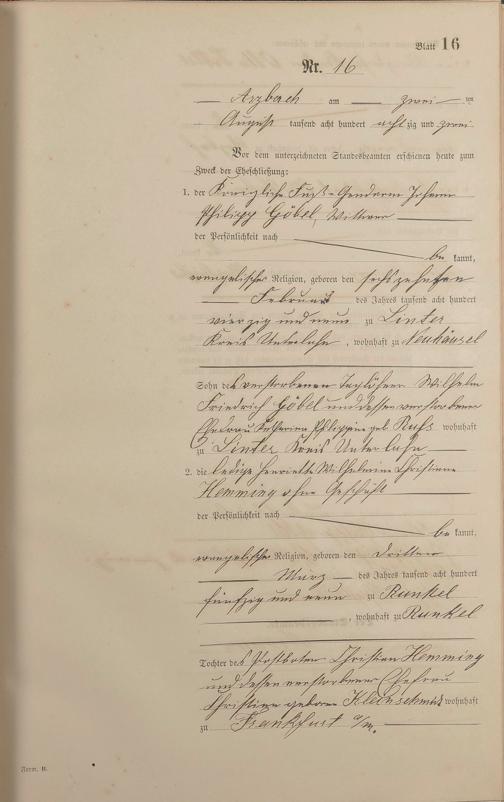 Blatt 16
Nr. 16
Arzbach am zwei ten
August tausend acht hundert achtzig und zwei
Vor dem unterzeichneten Standesbeamten erschienen heute zum
Zweck der Eheschließung:
1. der Königliche Fuß-Gendarm Johann
Philipp Göbel, Wittwer
der Persönlichkeit nach
be kannt,
evangelischer Religion, geboren den sechszehnten
Februar des Jahres tausend acht hundert
vierzig und neun zu Linter
Kreis Unterlahn, wohnhaft zu Neuhäusel
Sohn des verstorbenen Taglöhner Wilhelm
Friedrich Göbel und dessen verstorbenen
Ehefrau Philippine geb. Ruß wohnhaft
zu Linter Kreis Unterlahn
2. die ledige Henriette Wilhelmine Christiane
Hemming ohne Geschäft
der Persönlichkeit nach
be kannt,
evangelischer Religion, geboren den dritten
März des Jahres tausend acht hundert
fünfzig und neun zu Runkel
, wohnhaft zu Runkel
Tochter des Postboten Christian Hemming
und dessen verstorbener Ehefrau
Christine geborne Kleinschmidt wohnhaft
zu Frankfurt a/m.
Form. B.